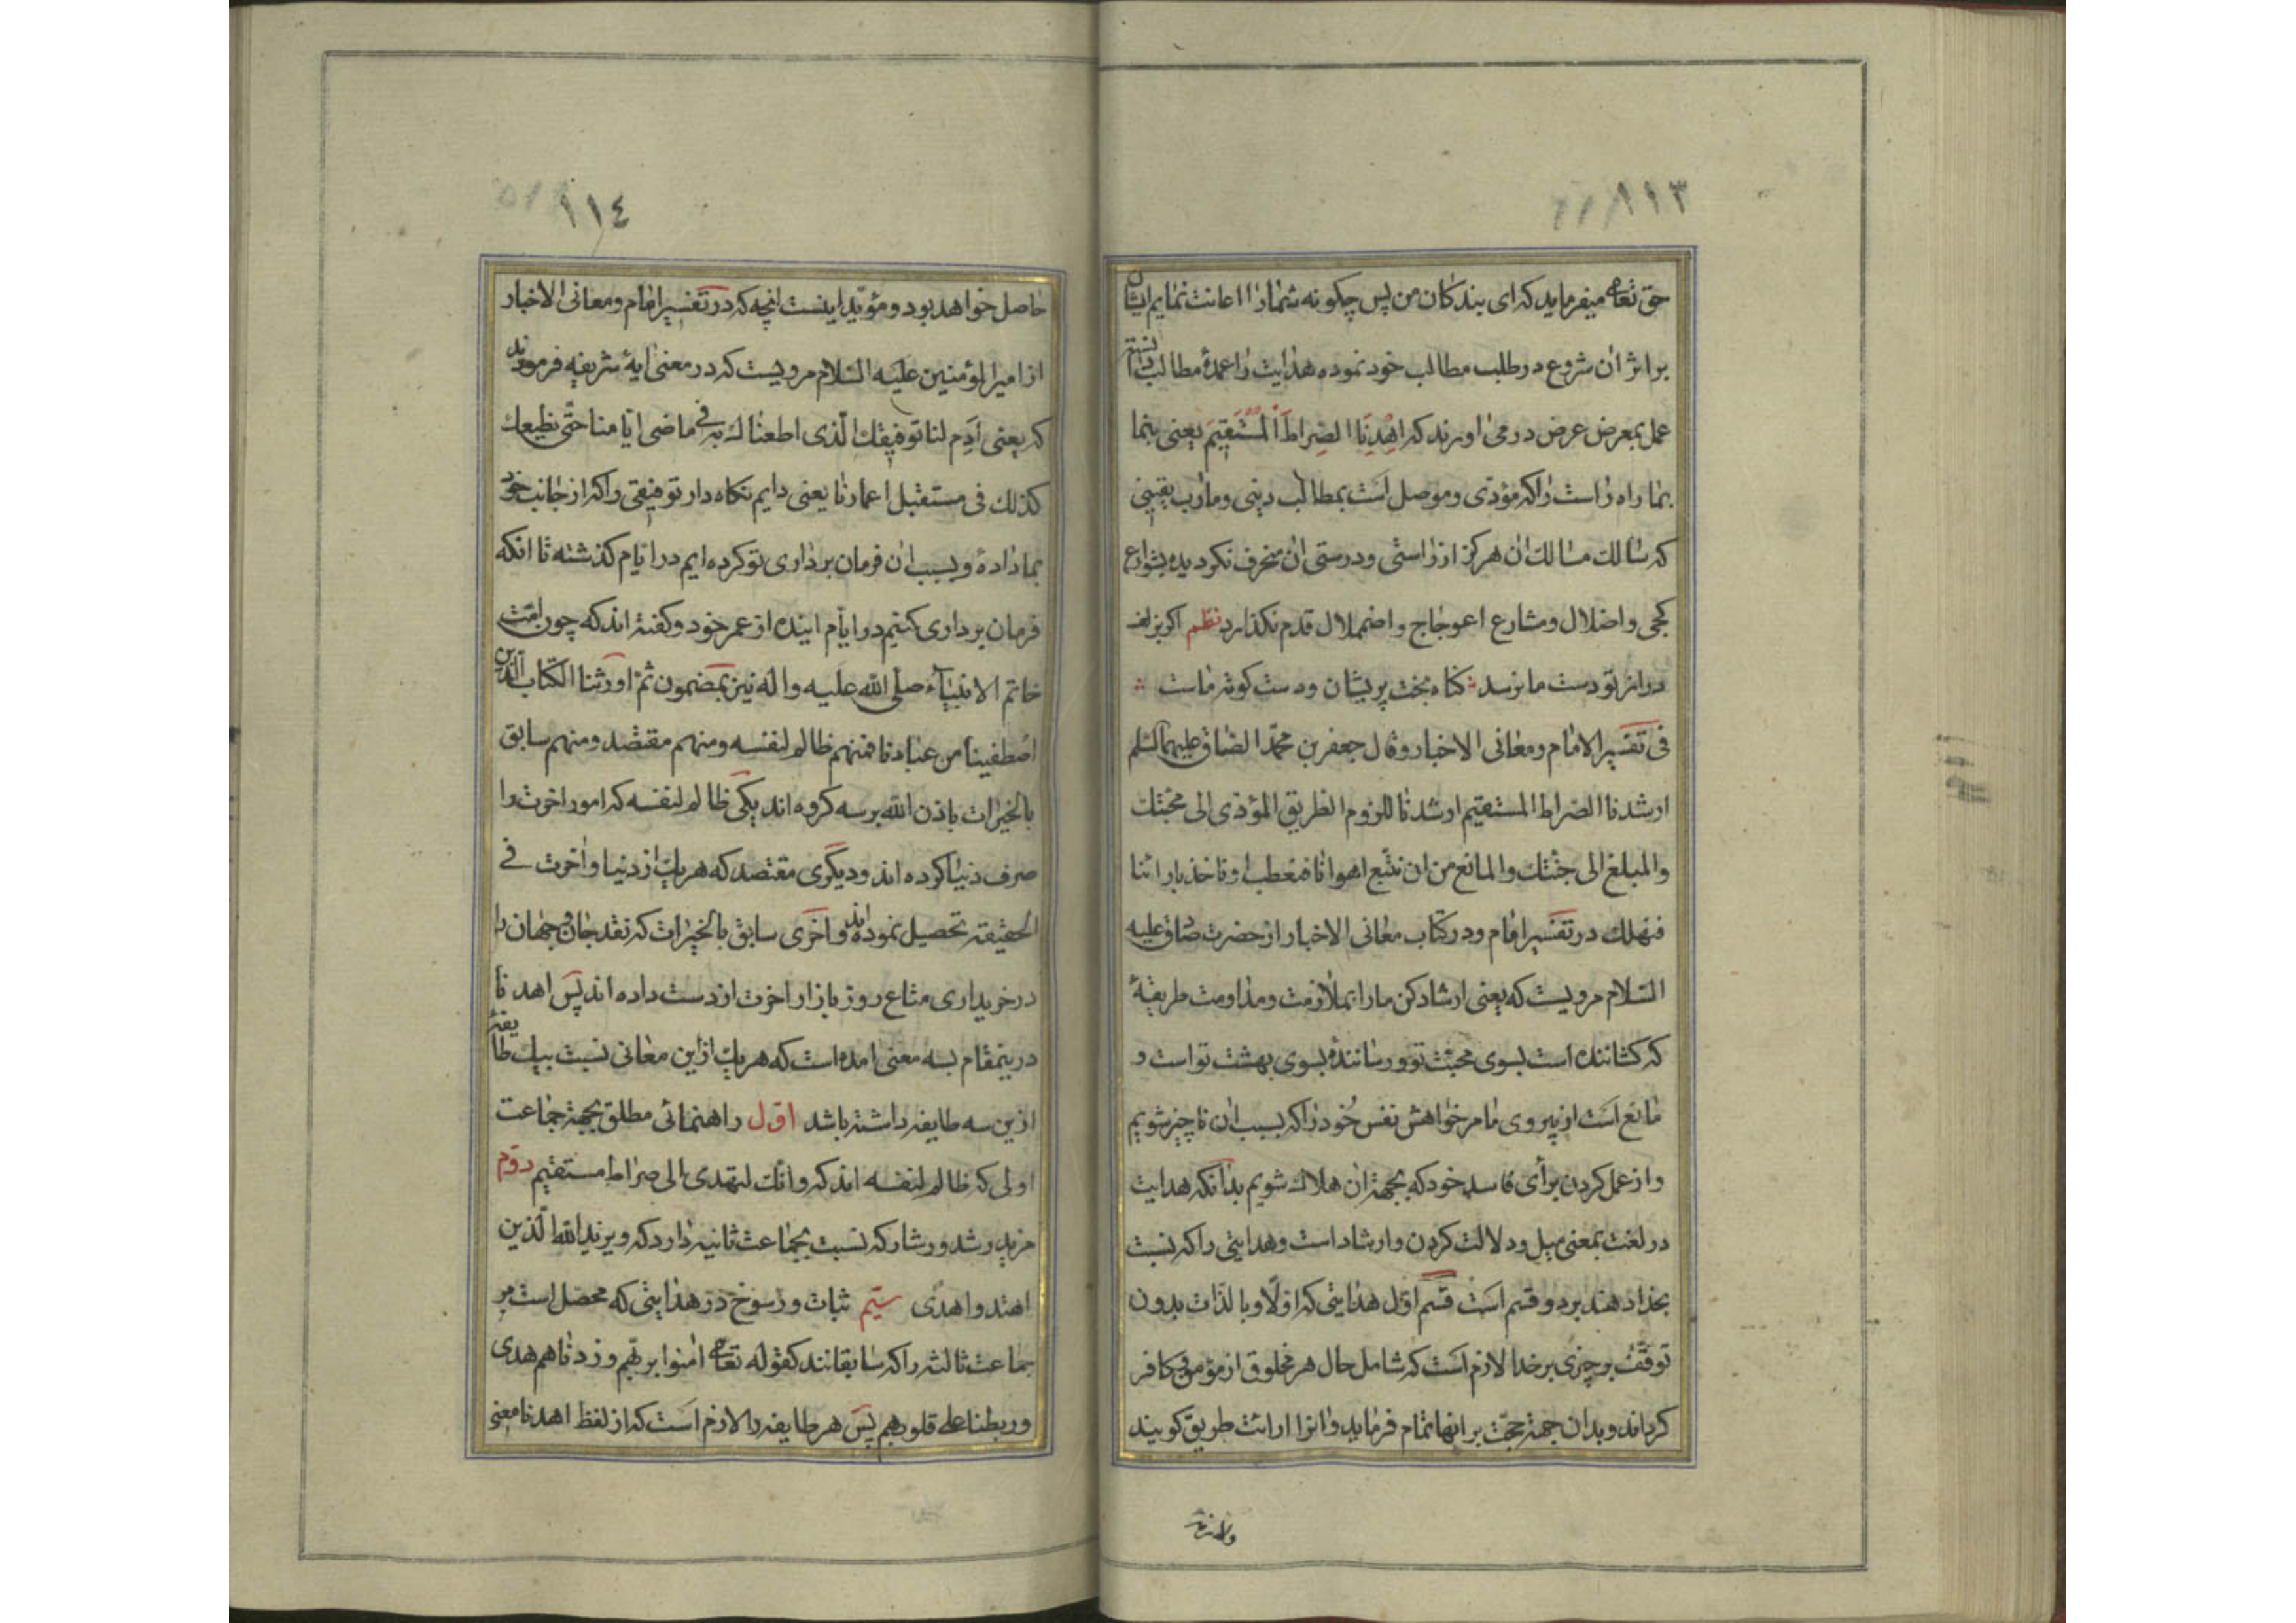 ١١٣
حق تعالی میفرماید که ای بندکان من پس چکونه شما را اعانت نمایم ایشان
براثر ان شروع در طلب مطالب خود نموده هدایت را عمدهٔ مطالب دانسته
عمل بمعرض عرض در می اورند که اهْدِنَا الصِراطَ الْمُسْتَقِیمَ یعنی بنما
بما راه راست را که مؤدّی و موصل است بمطالب دینی و مارب یقینی
که سالك مسالك ان هرکز از راستی و درستی ان منحرف نکردیده بشوارع
کجی و اضلال و مشارع اعوجاج و اضمحلال قدم نکذارد نظم اکر بزلف
دراز تو دست ما نرسد کناه بخت پریشان و دست کوته ماست
فی تفسیر الامام و معانی الاخبار و قال جعفر بن محمّد الصّادق علیهما السّلم
ارشدنا الصراط المستقیم ارشدنا للزوم الطریق المؤدّی الی محبّتك
والمبلغ الی جنّتك والمانع من ان نتّبع اهوائنا فنعطب او ناخذ بارائنا
فنهلك در تفسیر امام و در کتاب معانی الاخبار از حضرت صادق علیه
السّلام مرویست که یعنی ارشاد کن ما را بملازمت و مداومت طریقهٔ
که کشاننده است بسوی محبّت تو و رسانندهٔ بسوی بهشت تو است و
مانع است از پیروی ما مر خواهش نفس خُود را که بسبب ان ناچیز شویم
و از عمل کردن برأی فاسد خود که بجهة ان هلاك شویم بدانکه هدایت
در لغت بمعنی میل و دلالت کردن و ارشاد است و هدایتی را که نسبت
بخدا دهند بر دو قسم است قسم اوّل هدایتی که اوّلا و بالذّات بدون
توقّف بر چیزی بر خدا لازم است که شامل حال هر مخلوق از مؤمن و کافر
کرداند و بدان جهة حجّت بر انها تمام فرماید و انرا ارائت طریق کویند
١١٤
حاصل خواهد بود و مؤیّد اینست انچه که در تفسیر امام و معانی الاخبار
از امیر المؤمنین علیه السّلام مرویست که در معنی ایهٔ شریفه فرمودند
که یعنی اَدِم لنا توفیقك الّذی اطعناك به فی ماضی ایّامنا حتّی نطیعك
کذلك فی مستقبل اعمارنا یعنی دایم نکاه دار توفیقی را که از جانب خود
بما دادهٔ و بسبب ان فرمان برداری تو کرده ایم در ایّام کذشته تا انکه
فرمان برداری کنیم در ایّام اینده از عمر خود و کفته اند که چون امّت
خاتم الانبیآء صلّی الله علیه و اله نیز بمضمون ثمّ اورثنا الکتاب الّذین
اصطفینا من عبادنا فمنهم ظالم لنفسه ومنهم مقتصد ومنهم سابق
بالخیرات باذن الله بر سه کروه اند یکی ظالم لنفسه که امور اخرت را
صرف دنیا کرده اند و دیگری مقتصد که هریك از دنیا و اخرت فی
الحقیقة تحصیل نموده اند و اخری سابق بالخیرات که نقد جان و جهان را
در خریداری متاع روز بازار اخرت از دست داده اند پس اهدنا
درینمقام بسه معنی امده است که هریك از این معانی نسبت بیك طایفهٔ
ازین سه طایفه داشته باشد اوّل راهنمائی مطلق بجهة جماعت
اولی که ظالم لنفسه اند که وانّك لتهدی الی صراط مستقیم دوّم
مزید رشد و رشاد که نسبت بجماعت ثانیه دارد که ویزید الله الّذین
اهتدوا هدًی سیّم ثبات و رسوخ در هدایتی که محصّل است مر
جماعت ثالثه را که سابقانند کقوله تعالی امنوا بربّهم وزدناهم هدی
وربطنا علی قلوبهم پس هر طایفه را لازم است که از لفظ اهدنا معنی